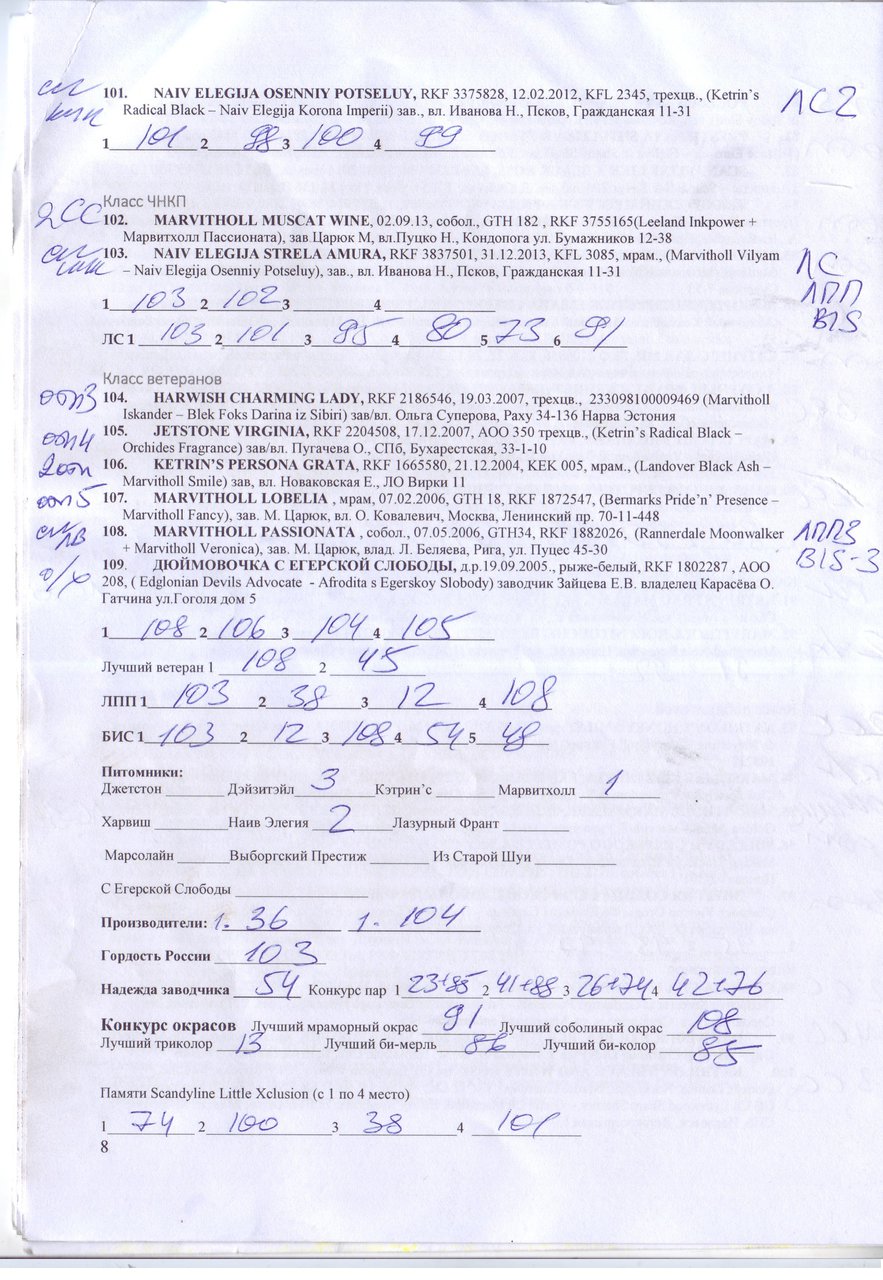 101. NAIV ELEGIJA OSENNIY POTSELUY, RKF 3375828, 12.02.2012, KFL 2345, трехцв., (Ketrin's
Radical Black – Naiv Elegija Korona Imperii) зав., вл. Иванова Н., Псков, Гражданская 11-31
ЛС2
1 101 2 98 3 100 4 99
Класс ЧНКП
2СС
102. MARVITHOLL MUSCAT WINE, 02.09.13, собол., GTH 182 , RKF 3755165(Leeland Inkpower +
Марвитхолл Пассионата), зав Царюк М, вл.Пуцко Н., Кондопога ул. Бумажников 12-38
103. NAIV ELEGIJA STRELA AMURA, RKF 3837501, 31.12.2013, KFL 3085, мрам., (Marvitholl Vilyam
– Naiv Elegija Osenniy Potseluy), зав., вл. Иванова Н., Псков, Гражданская 11-31
ЛС
ЛПП
BIS
1 103 2 102 3 4
ЛС 1 103 2 101 3 95 4 80 5 73 6 91
Класс ветеранов
отл3 104. HARWISH CHARMING LADY, RKF 2186546, 19.03.2007, трехцв., 233098100009469 (Marvitholl
Iskander – Blek Foks Darina iz Sibiri) зав/вл. Ольга Суперова, Раху 34-136 Нарва Эстония
отл4 105. JETSTONE VIRGINIA, RKF 2204508, 17.12.2007, АОО 350 трехцв., (Ketrin's Radical Black –
Orchides Fragrance) зав/вл. Пугачева О., СПб, Бухарестская, 33-1-10
2отл 106. KETRIN'S PERSONA GRATA, RKF 1665580, 21.12.2004, КЕК 005, мрам., (Landover Black Ash –
Marvitholl Smile) зав, вл. Новаковская Е., ЛО Вирки 11
отл5 107. MARVITHOLL LOBELIA , мрам, 07.02.2006, GTH 18, RKF 1872547, (Bermarks Pride'n' Presence –
Marvitholl Fancy), зав. М. Царюк, вл. О. Ковалевич, Москва, Ленинский пр. 70-11-448
108. MARVITHOLL PASSIONATA , собол., 07.05.2006, GTH34, RKF 1882026, (Rannerdale Moonwalker
ЛВ + Marvitholl Veronica), зав. М. Царюк, влад. Л. Беляева, Рига, ул. Пуцес 45-30
ЛПП3
BIS-3
о/х 109. ДЮЙМОВОЧКА С ЕГЕРСКОЙ СЛОБОДЫ, д.р.19.09.2005., рыже-белый, RKF 1802287 , АОО
208, ( Edglonian Devils Advocate - Afrodita s Egerskoy Slobody) заводчик Зайцева Е.В. владелец Карасёва О.
Гатчина ул.Гоголя дом 5
1 108 2 106 3 104 4 105
Лучший ветеран 1 108 2 45
ЛПП 1 103 2 38 3 12 4 108
БИС 1 103 2 12 3 108 4 54 5 48
Питомники:
Джетстон Дэйзитэйл 3 Кэтрин'с Марвитхолл 1
Харвиш Наив Элегия 2 Лазурный Франт
Марсолайн Выборгский Престиж Из Старой Шуи
С Егерской Слободы
Производители: 1. 36 1. 104
Гордость России 103
Надежда заводчика 54 Конкурс пар 1 23+85 2 41+88 3 26+74 4 42+76
Конкурс окрасов Лучший мраморный окрас 91 Лучший соболиный окрас 108
Лучший триколор 13 Лучший би-мерль 86 Лучший би-колор 85
Памяти Scandyline Little Xclusion (с 1 по 4 место)
1 74 2 100 3 38 4 101
8